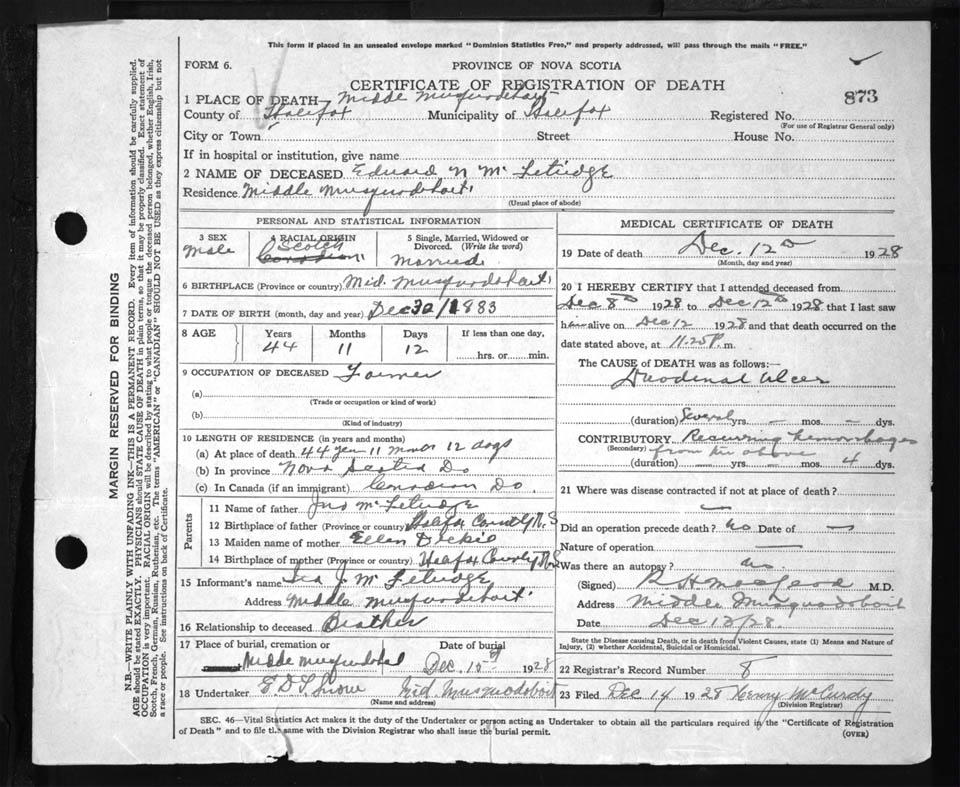 This form if placed in an unsealed envelope marked "Dominion Statistics Free," and properly addressed, will pass through the mails "FREE."
FORM 6.
PROVINCE OF NOVA SCOTIA
CERTIFICATE OF REGISTRATION OF DEATH
873
1 PLACE OF DEATH Midde Musquodoboit
County of Halifax Municipality of Halifax Registered No.
(For use of Registrar General only)
City or Town Street House No.
If in hospital or institution, give name
2 NAME OF DECEASED Edward N McLetridge
Residence Middle Musquodoboit
(Usual place of abode)
PERSONAL AND STATISTICAL INFORMATION
3 SEX Male
4 RACIAL ORIGIN Scotch Canadian
5 Single, Married, Widowed or Divorced. (Write the word)
Married
6 BIRTHPLACE (Province or country) Mid. Musquodoboit
7 DATE OF BIRTH (month, day and year) Dec 30/1883
8 AGE Years Months Days If less than one day,
44 11 12 hrs. or min.
9 OCCUPATION OF DECEASED Farmer
(a)
(Trade or occupation or kind of work)
(b)
(Kind of industry)
10 LENGTH OF RESIDENCE (in years and months)
(a) At place of death 44 11 12 days
(b) In province Nova Scotia Do
(c) In Canada (if an immigrant) Canadian Do.
Parents
11 Name of father Jno McLetridge
12 Birthplace of father (Province or country) Halifax County N.S
13 Maiden name of mother Ellen Dickie
14 Birthplace of mother (Province or country) Halifax County N.S
15 Informant's name Ira J. McLetridge
Address Middle Musquodoboit
16 Relationship to deceased Brother
17 Place of burial, cremation or Date of burial
Midde Musquodoboit Dec. 15th 1928
18 Undertaker Mid Musquodoboit
(Name and address)
MEDICAL CERTIFICATE OF DEATH
19 Date of death Dec. 12th 1928
(Month, day and year)
20 I HEREBY CERTIFY that I attended deceased from
Dec 8th 1928 to Dec 12th 1928 that I last saw
him alive on Dec 12 1928 and that death occurred on the
date stated above, at 11.25 P. m.
The CAUSE OF DEATH was as follows:—
Duodenal Ulcer
(duration) Several yrs. — mos. — dys.
CONTRIBUTORY Recurring hemorrhages
(Secondary) from the above
(duration) yrs. mos. 4 dys.
21 Where was disease contracted if not at place of death?
—
Did an operation precede death? no Date of —
Nature of operation —
Was there an autopsy? no
(Signed) R H MacLeod M.D.
Address Middle Musquodoboit
Date Dec 13/28.
State the Disease causing Death, or in death from Violent Causes, state (1) Means and Nature of Injury, (2) whether Accidental, Suicidal or Homicidal.
22 Registrar's Record Number 8
23 Filed Dec 14 1928 Henry McCurdy
(Division Registrar)
SEC. 46—Vital Statistics Act makes it the duty of the Undertaker or person acting as Undertaker to obtain all the particulars required in the "Certificate of Registration
of Death" and to file the same with the Division Registrar who shall issue the burial permit.
(OVER)
MARGIN RESERVED FOR BINDING
N.B.—WRITE PLAINLY WITH UNFADING INK—THIS IS A PERMANENT RECORD. Every item of information should be carefully supplied.
AGE should be stated EXACTLY. PHYSICIANS should STATE CAUSE OF DEATH in plain terms, so that it may be properly classified. Exact statement of
OCCUPATION is very important. RACIAL ORIGIN will be described by stating to what people or tongue the deceased person belonged, whether English, Irish,
Scotch, French, German, Russian, Ruthenian, etc. The terms "AMERICAN" or "CANADIAN" SHOULD NOT BE USED as they express citizenship but not
a race or people. See instructions on back of Certificate.